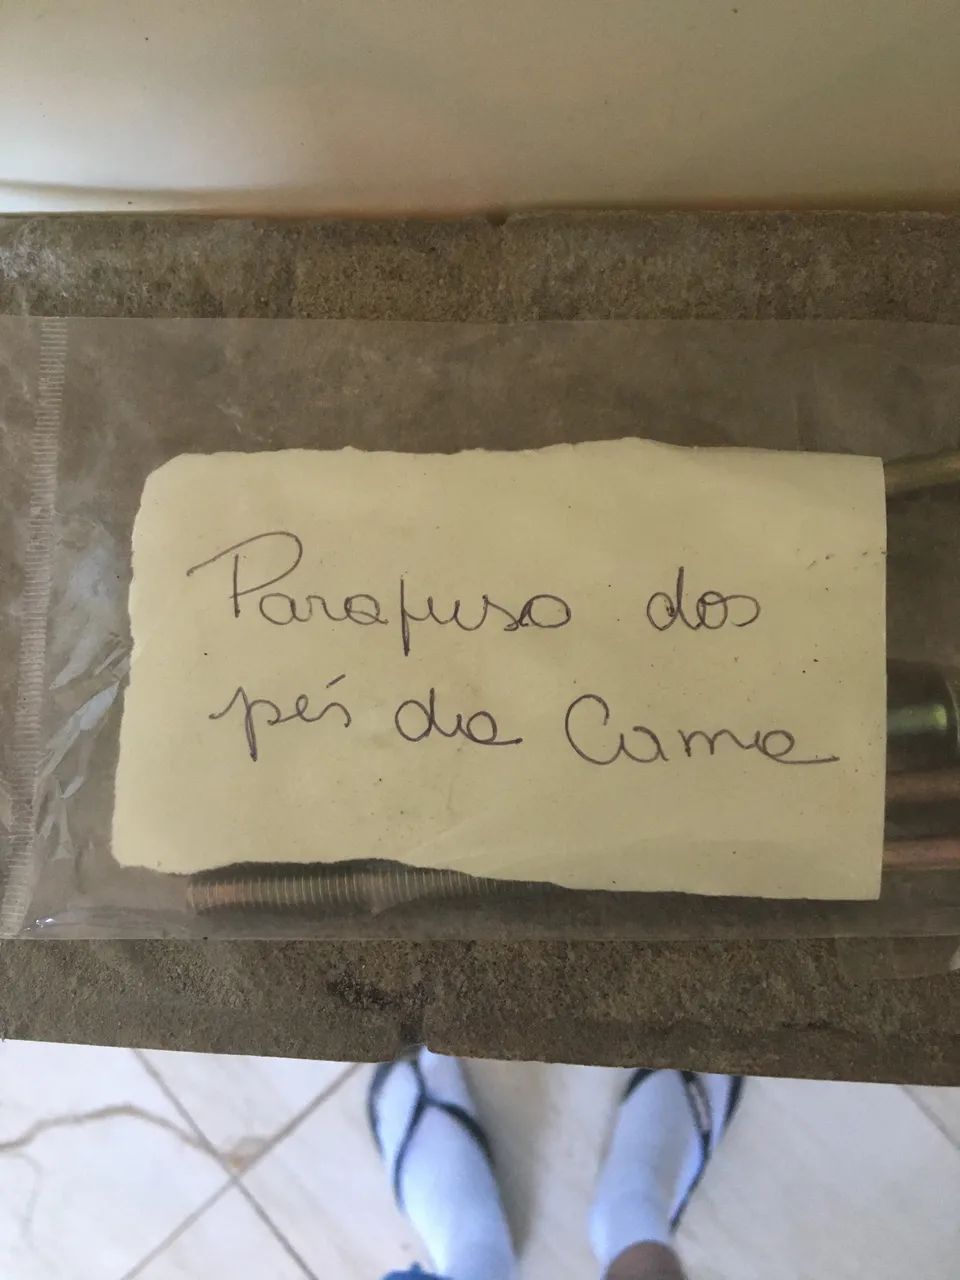 Parafuso dos
pés da Cama